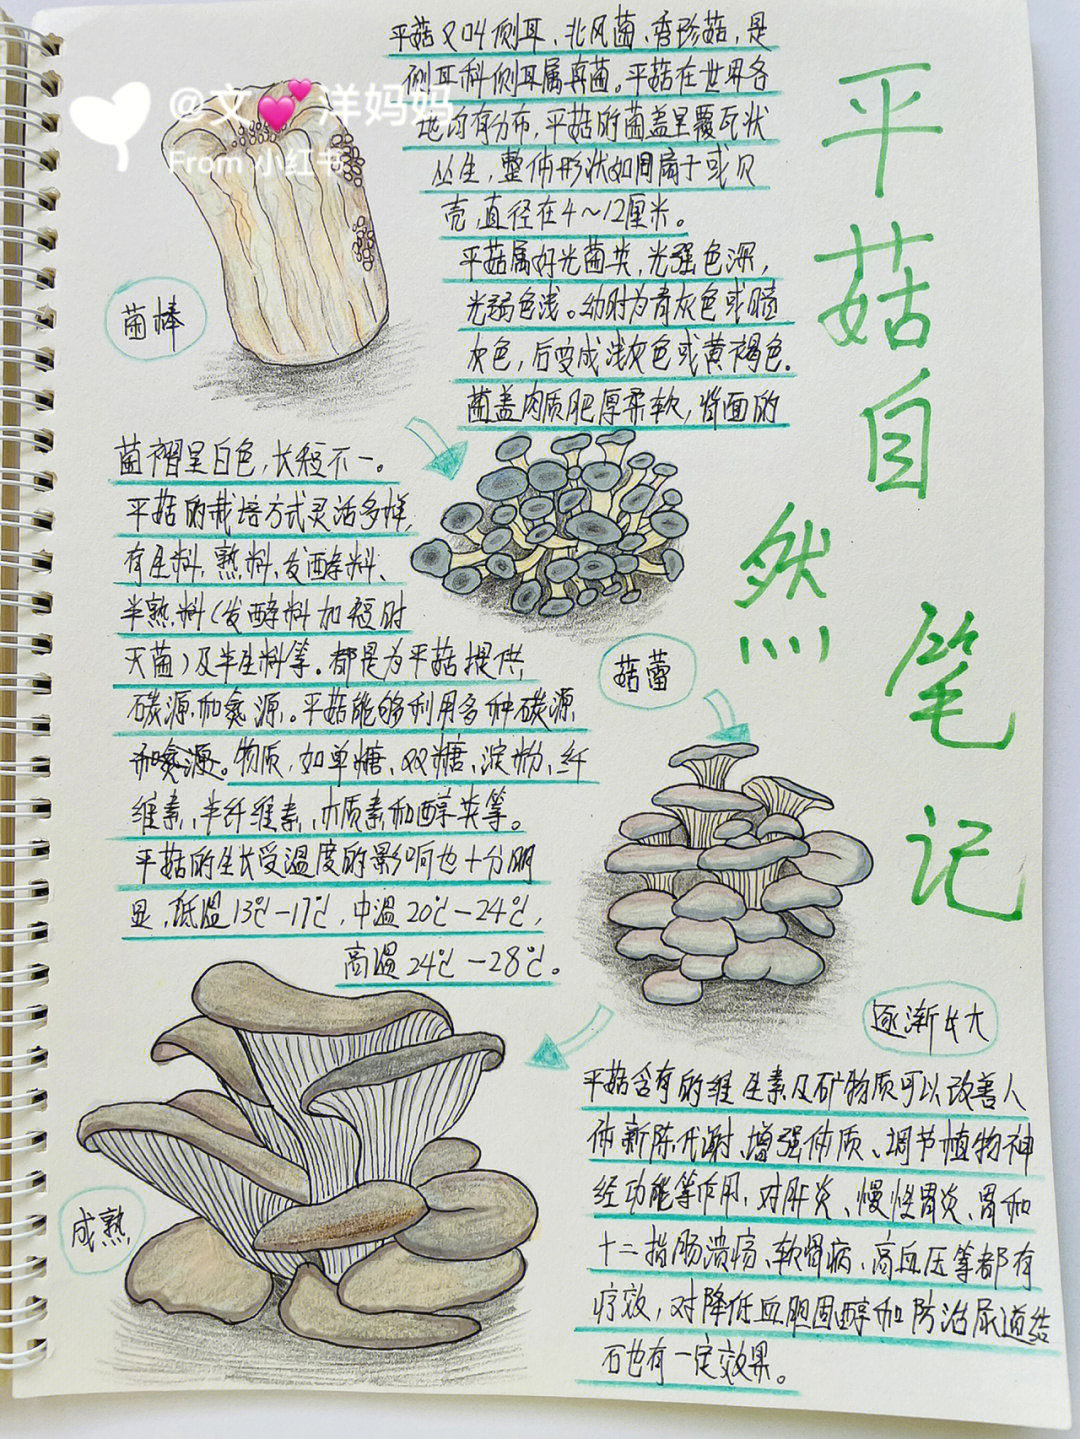 平菇自然笔记
@文💕洋妈妈
From 小红书
平菇又叫侧耳、北风菌、秀珍菇，是
侧耳科侧耳属真菌。平菇在世界各
地均有分布，平菇的菌盖呈覆瓦状
丛生，整体形状如同扇子或贝
壳，直径在4～12厘米。
平菇属好光菌类，光强色深，
光弱色浅。幼时为青灰色或暗
灰色，后变成浅灰色或黄褐色.
菌盖肉质肥厚柔软，背面的
菌褶呈白色，长短不一。
平菇的栽培方式灵活多样，
有生料、熟料、发酵料、
半熟料（发酵料加短时
灭菌）及半生料等。都是为平菇提供
碳源和氮源。平菇能够利用多种碳源
和氮源。物质，如单糖、双糖、淀粉、纤
维素、半纤维素、木质素和醇类等。
平菇的生长受温度的影响也十分明
显，低温13℃-17℃，中温20℃-24℃，
高温24℃-28℃。
菌棒
菇蕾
逐渐长大
成熟
平菇含有的维生素及矿物质可以改善人
体新陈代谢、增强体质、调节植物神
经功能等作用，对肝炎、慢性胃炎、胃和
十二指肠溃疡、软骨病、高血压等都有
疗效，对降低血胆固醇和防治尿道结
石也有一定效果。